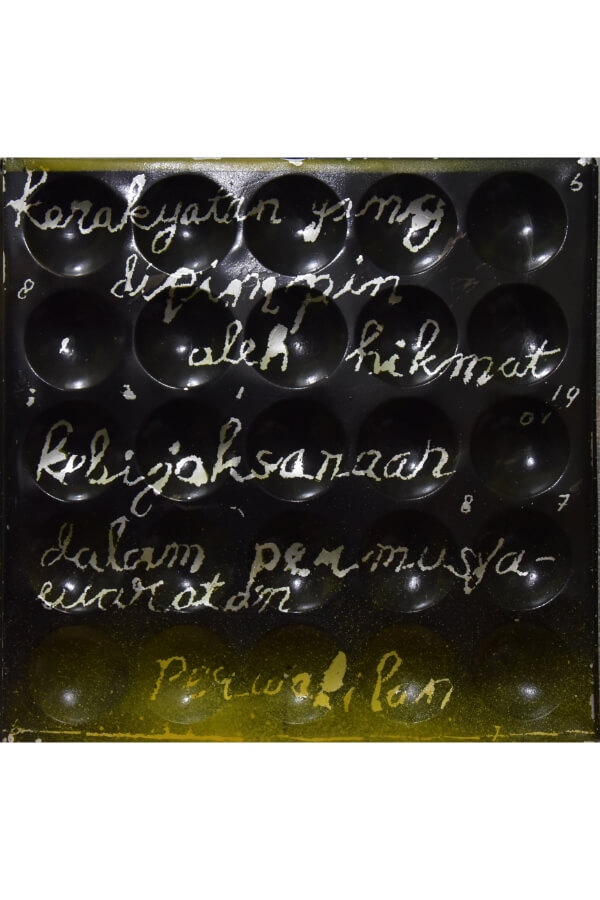 Kerakyatan yang
6
8
dipimpin
oleh hikmat
19
01
kebijaksanaan
8 7
dalam permusya-
waratan
Perwakilan